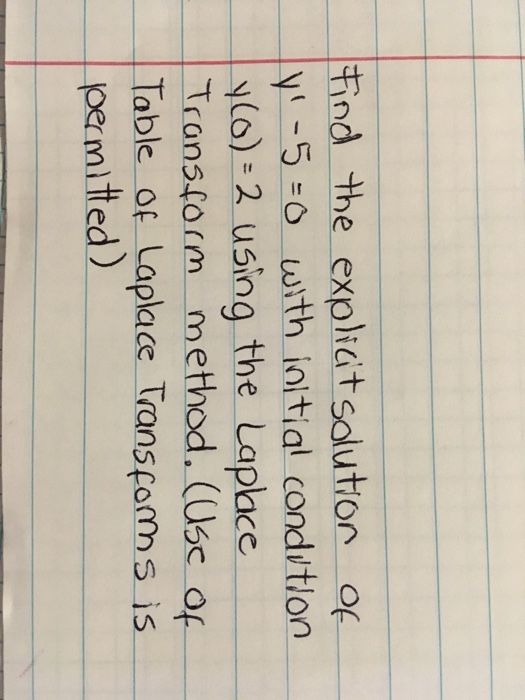 Find the explicit solution of
y' - 5 = 0 with initial condition
y(0) = 2 using the Laplace
Transform method. (Use of
Table of Laplace Transforms is
permitted)